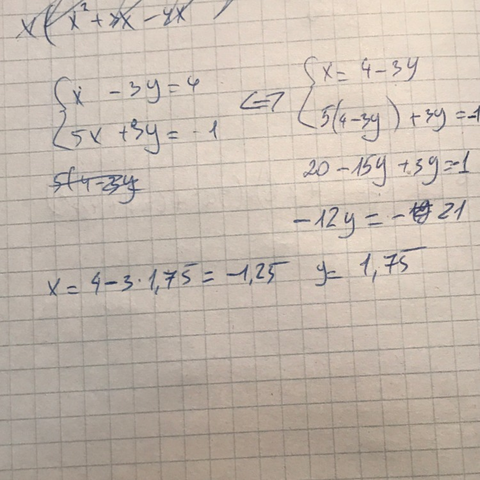 x(x² + 3x - 4x)
x - 3y = 4
5x + 3y = -1
5(4-3y
<=> x = 4 - 3y
5(4-3y) + 3y = -1
20 - 15y + 3y = -1
-12y = -21
x = 4 - 3 · 1,75 = -1,25 y = 1,75